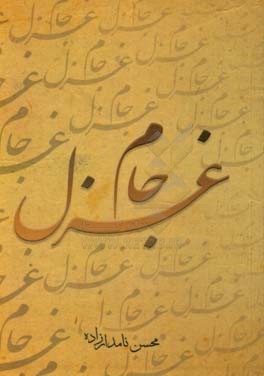 جام
غزل
محسن نامدارزاده